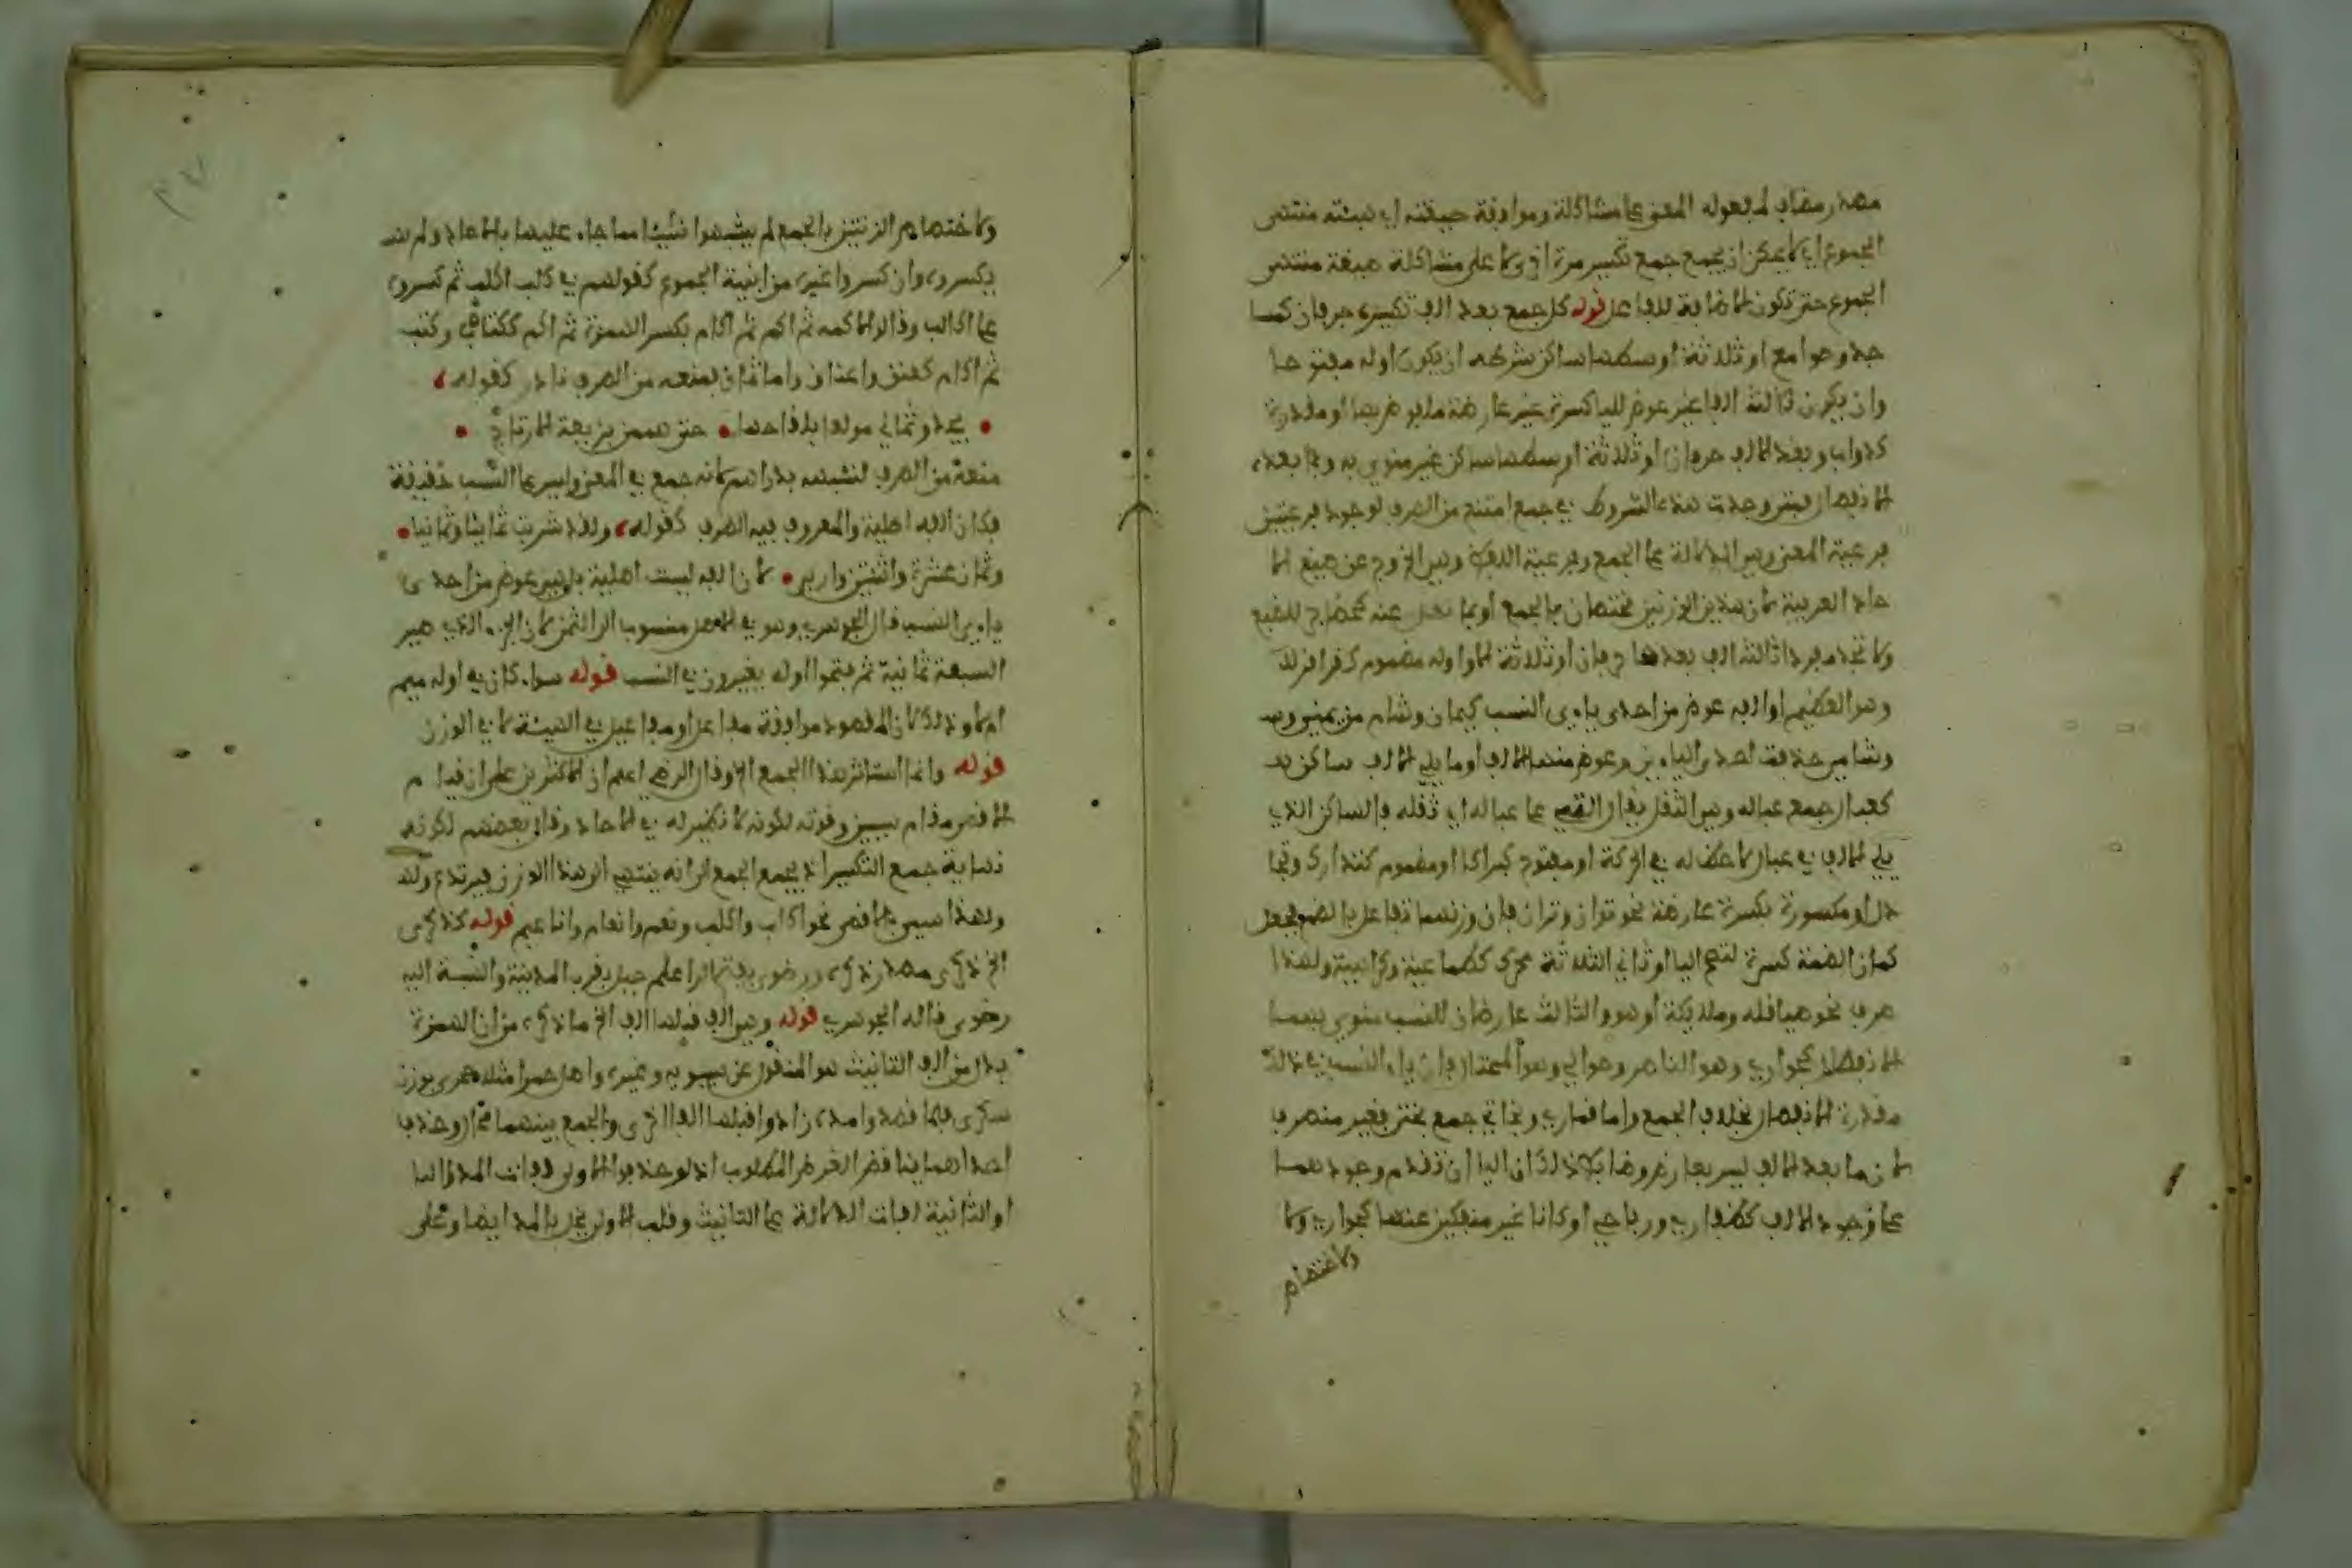 مصدر مضاف لمفعوله المعنى على مشاكلة وموافقة صيغته اي هيئته منتهى
الجموع اي لا يمكن ان يجمع جمع تكسير مرة اخرى لا على مشاكلة صيغة منتهى
الجموع حتى تكون الاضافة للفاعل قوله كل جمع بعد الف تكسيره حرفان كمسا
جد وصوامع او ثلاثة اوسطها ساكن شرطه ان يكون اوله مفتوحا
وان يكون ثالثه الفا غير عوض لليا كسرة غير عارضة ملفوظ بها او مقدرة
كدواب وبعد الالف حرفان او ثلاثة اوسطها ساكن غير منوي به وبما بعده
الانفصال فمتى وجدت هذه الشروط في جمع امتنع من الصرف لوجود فرعيتين
فرعية المعنى وهي الدلالة على الجمع وفرعية اللفظ وهي الخروج عن صيغ الا
حاد العربية لان هذين الوزنين مختصان بالجمع او بما نقل عنه كحضاجر للضبع
ولا تجد مفردا ثالثه الف بعدها حرفان او ثلاثة الا واوله مضموم كفرافر
وهو العظيم او الفه عوض من احدى ياءي النسب كيمان وشام من يمني و
وشامي حذفت احدى الياءين وعوض منها الالف او ما يلي الالف ساكن
كعبال جمع عبالة وهي الثقل يقال القى على عبالة اي ثقله فالساكن الذي
يلي الالف في عبال لا حظ له في الحركة او مفتوح كبراكا او مضموم كتدارك وتجا
دل او مكسورة بكسرة عارضة نحو توان وتران فان وزنهما تفاعل بالضم فجعل
كمان الضمة كسرة لتصح اليا او ثاني الثلاثة محرك كطماعية وكراهية ولهذا
صرف نحو صياقلة وملائكة او هو والثالث عارضان للنسب منوي بهما
الانفصال كحواري وهو الناصر وحوالي وهو المحتال فان ياء النسب في ذلك
مقدرة الانفصال بخلاف الجمع واما قماري وبخاتي جمع بختي فغير منصرف
لان ما بعد الالف ليس بعارض وضابط ذلك ان اليا ان تقدم وجودهما
على وجود الالف كظفاري ورباحي او كانا غير منفكين عنها كحواري ولا
ولاختصاص
ولاختصاص الزنتين بالجمع لم يشبهوا شيئا مما جاء عليهما بالاحاد ولم
يكسروه وان كسروا غيره من ابنية الجموع كقولهم في كلب اكلب ثم كسروه
على اكالب وقالوا اكمه ثم اكم ثم اكام بكسر الهمزة ثم اكم ككتاب وكتب
ثم اكام كعنق واعناق واما ثمان فمنعه من الصرف نادر كقوله
يحدو ثماني مولعا بلقاحها حتى هممن بزيغة الارتاج
منعه من الصرف لتشبهه بدراهم لانه جمع في المعنى وليس بها النسب حقيقة
فكان الفه اصلية والمعروف فيه الصرف كقوله ولقد شربت ثمانيا وثمانيا
وثمان عشرة واثنتين واربع لان الفه ليست اصلية بل هي عوض من احدى
ياءي النسب قال الجوهري وهو في الاصل منسوب الى الثمن لان الجزء الذي صير
السبعة ثمانية ثم فتحوا اوله يغيرون في النسب قوله سواء كان في اوله ميم
ام لا وذلك لان المقصود موافقة مفاعل او مفاعيل في الهيئة لا في الوزن
قوله وانما استاثر هذا الجمع الخ وقال الرضي اعلم ان الاكثرين على ان قيام
الاقصى مقام سببين وقوته لكونه لا نظير له في الاحاد وقال بعضهم لكونه
نهاية جمع التكسير اذ يجمع الجمع الى انه ينتهي الى هذا الوزن فيرتدع
ولهذا سمي بالاقصى نحو اكالب واكلب ونعم وانعام واناعيم قوله كذكرى
الخ ذكرى مصدر ذكر ورضوى بفتح الرا علم جبل بقرب المدينة والنسبة اليه
رضوي قاله الجوهري قوله وهي الف قبلها الف الخ ما ذكره من ان الهمزة
بدل من الف التانيث هو المنقول عن سيبويه وغيره واصل حمرا مثلا حمرى بوزن
سكرى فلما قصدوا مده زادوا قبلها الفا اخرى والجمع بينهما محال وحذف
احداهما يناقض الغرض المطلوب اذ لو حذفوا الاولى لفات المد
او الثانية لفات الدلالة على التانيث وقلب الاولى يخل بالمد ايضا وعلى